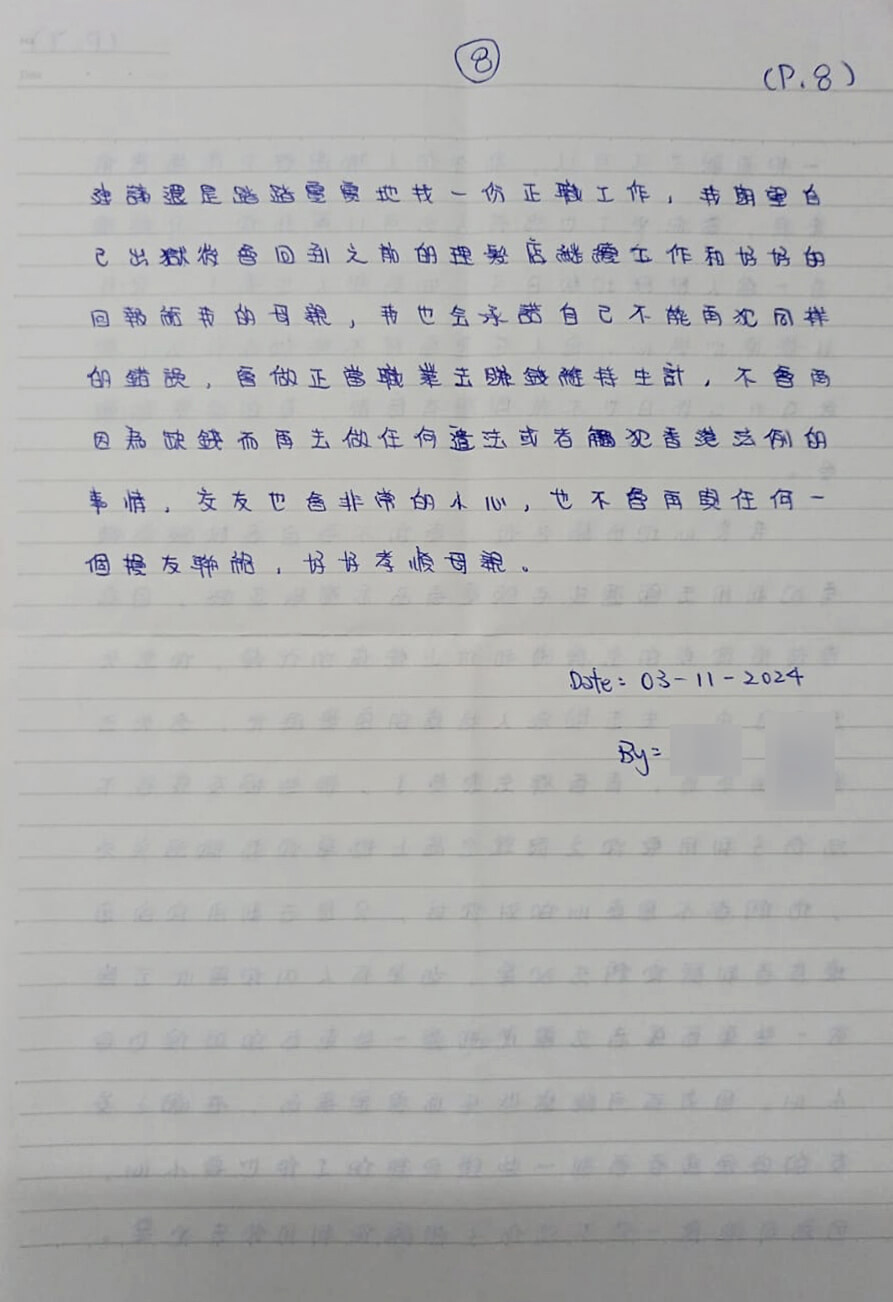 8
(P.8)
建議還是踏踏實實地找一份正職工作,我期望自
己出獄後會回到之前的理髮店繼續工作和好好的
回報給我的母親,我也會承諾自己不能再犯同樣
的錯誤,會做正當職業去賺錢維持生計,不會再
因為缺錢而再去做任何違法或者觸犯香港法例的
事情,交友也會非常的小心,也不會再與任何一
個損友聯絡,好好孝順母親。
Date: 03-11-2024
By: